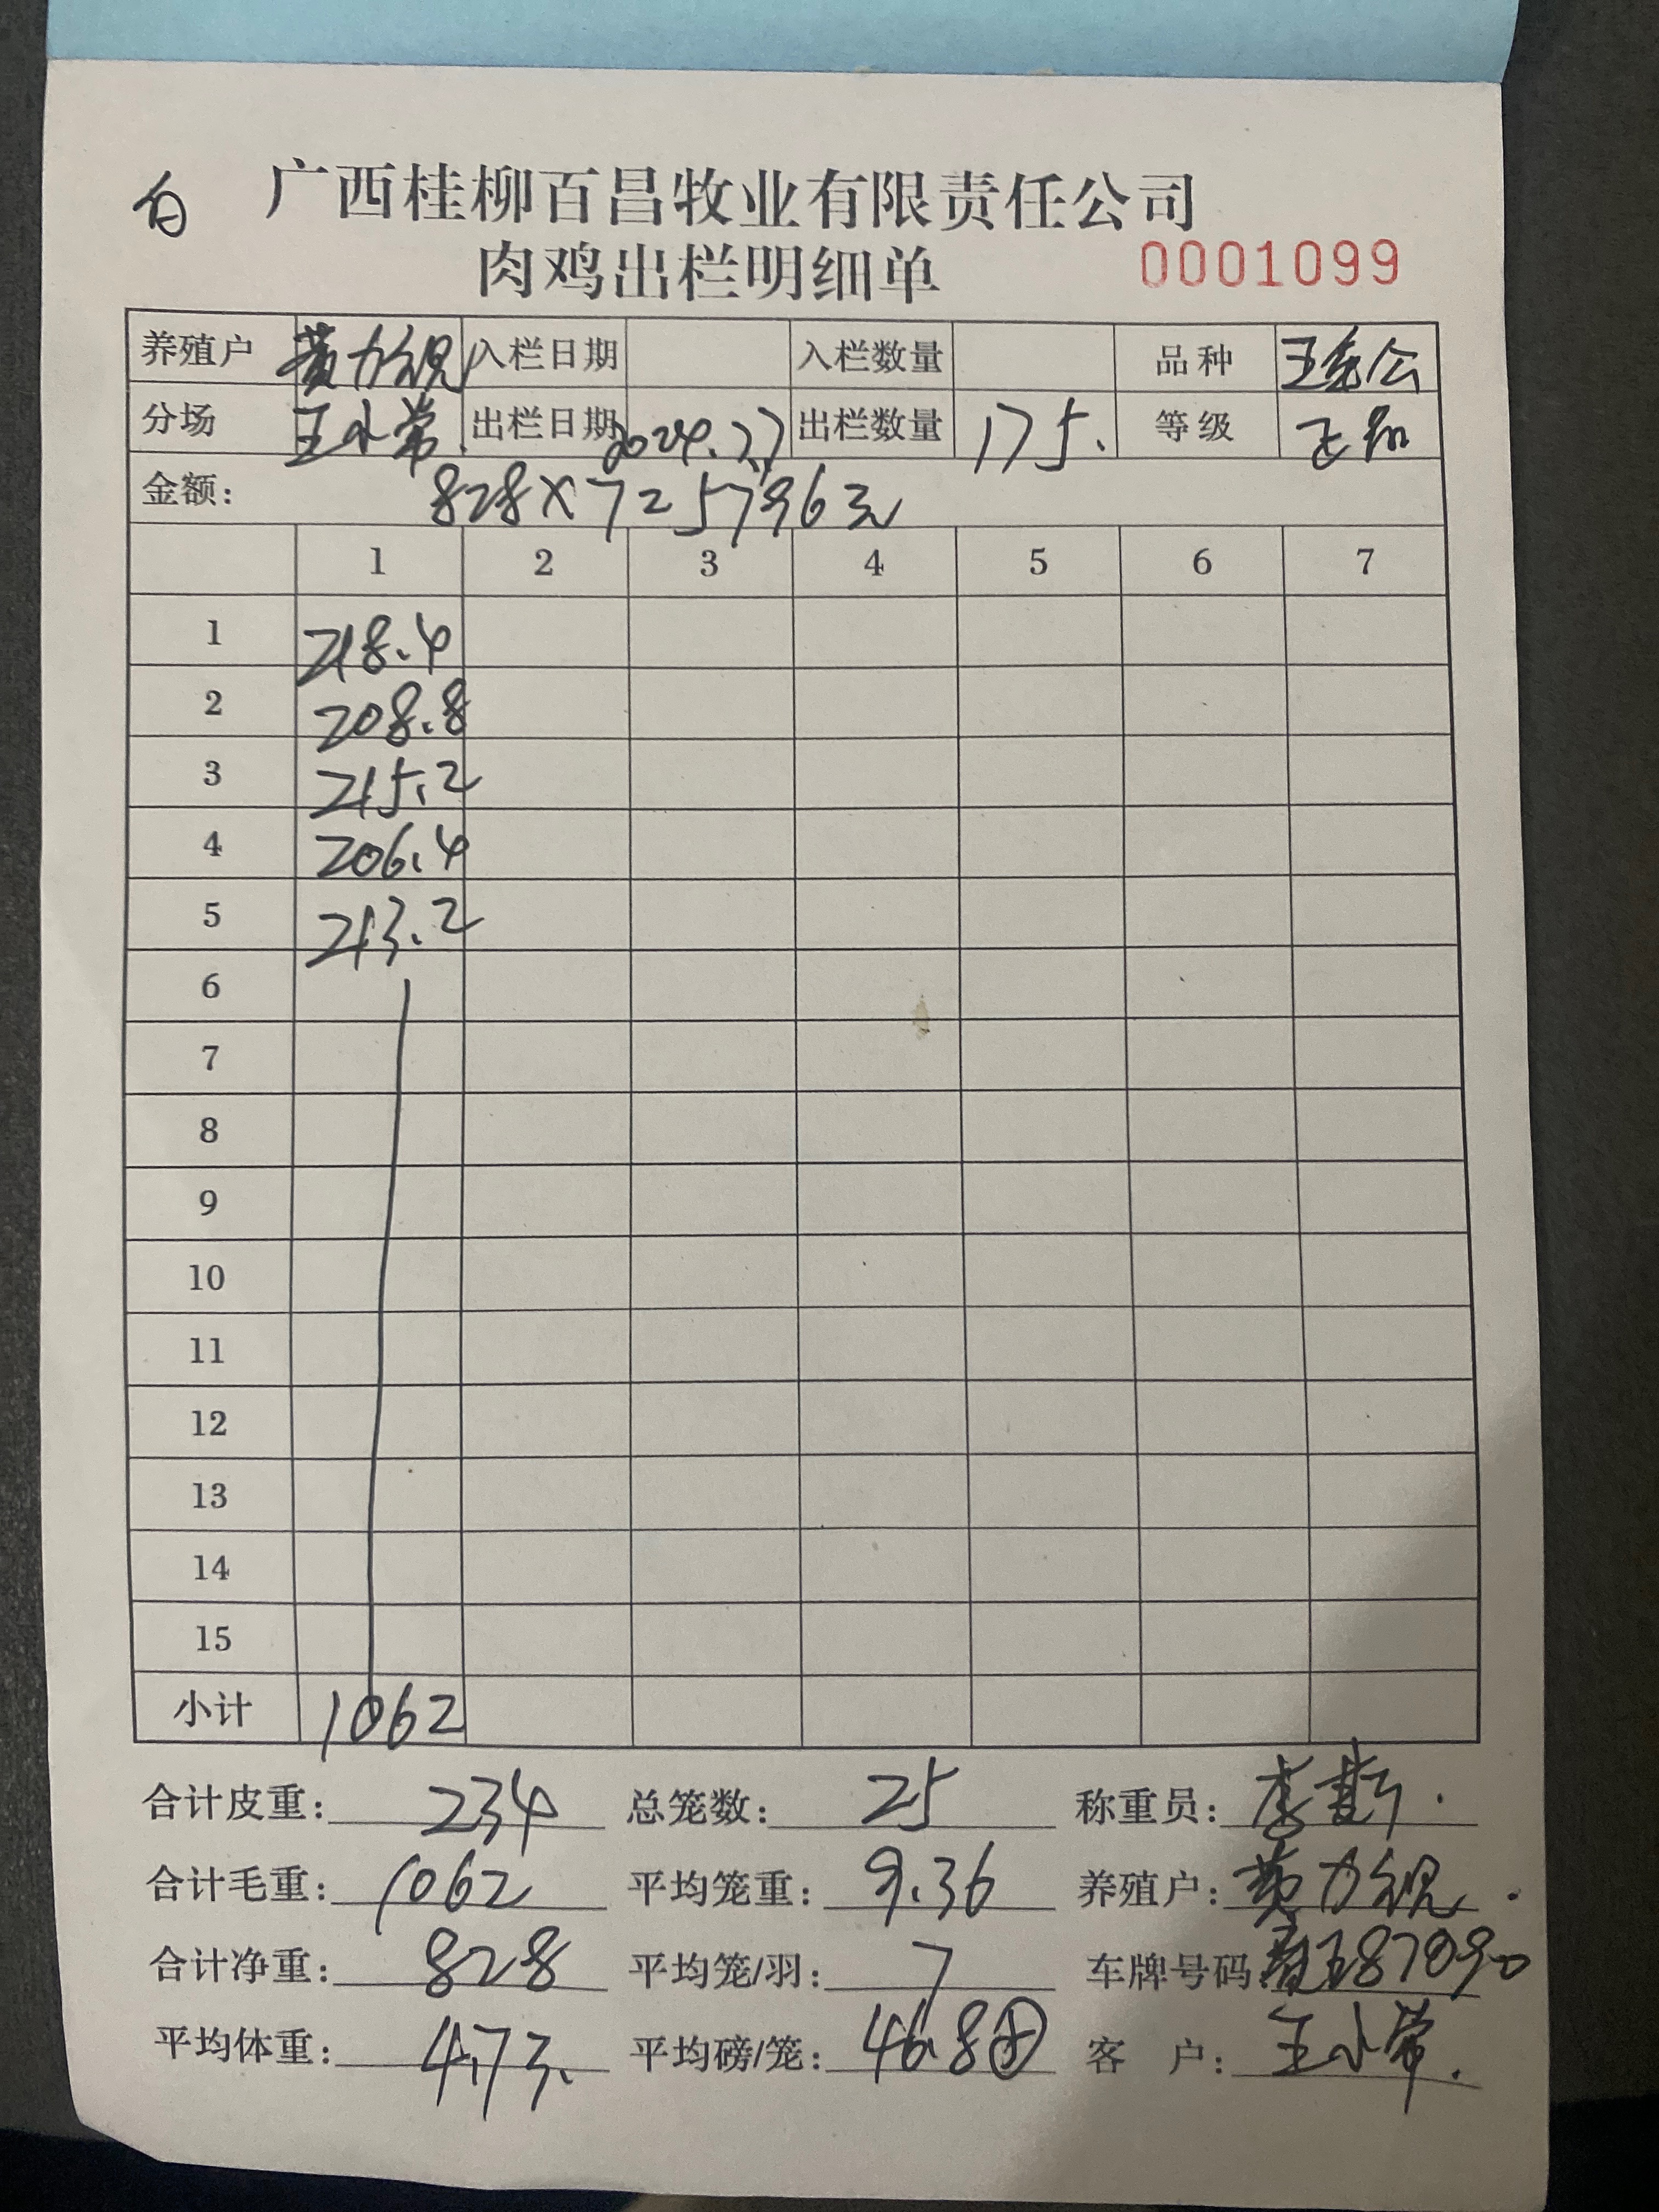 广西桂柳百昌牧业有限责任公司
肉鸡出栏明细单 0001099
养殖户 黄力 入栏日期 入栏数量 品种
分场 王小常 出栏日期 2024.7.7 出栏数量 175. 等级
金额: 828×7 = 5796元
1 2 3 4 5 6 7
1 218.4
2 208.8
3 215.2
4 206.4
5 213.2
6
7
8
9
10
11
12
13
14
15
小计 1062
合计皮重: 234 总笼数: 25 称重员: 李
合计毛重: 1062 平均笼重: 9.36 养殖户: 黄力
合计净重: 828 平均笼/羽: 7 车牌号码:
平均体重: 4.73. 平均磅/笼: 46.8 客 户: 王小常.